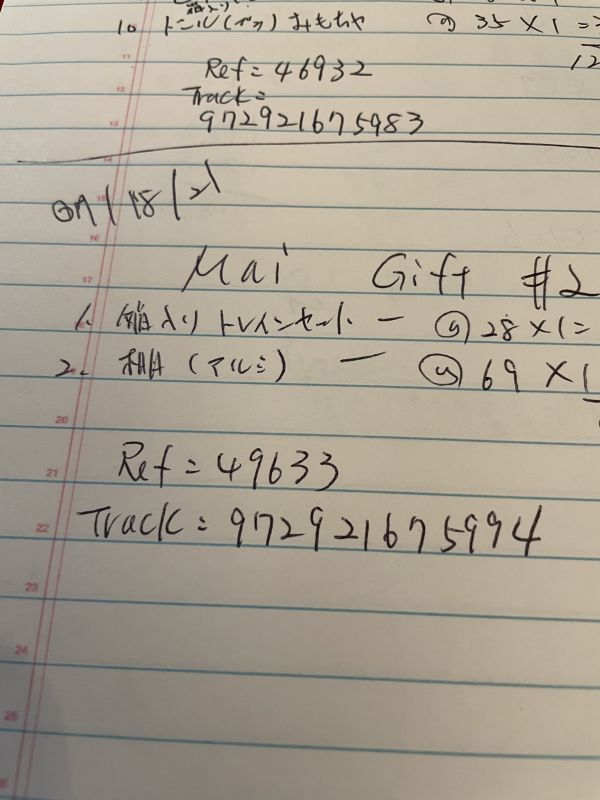 10 トミル(ボク) おもちゃ @ 35 × 1 =
12
Ref = 46932
Track =
972921675983
Mai Gift #2
1. 箱入り トレインセット — @ 28 × 1 =
2. 棚 (アルミ) — @ 69 × 1
Ref = 49633
Track = 972921675994
11
12
13
14
16
17
20
21
22
23
24
25